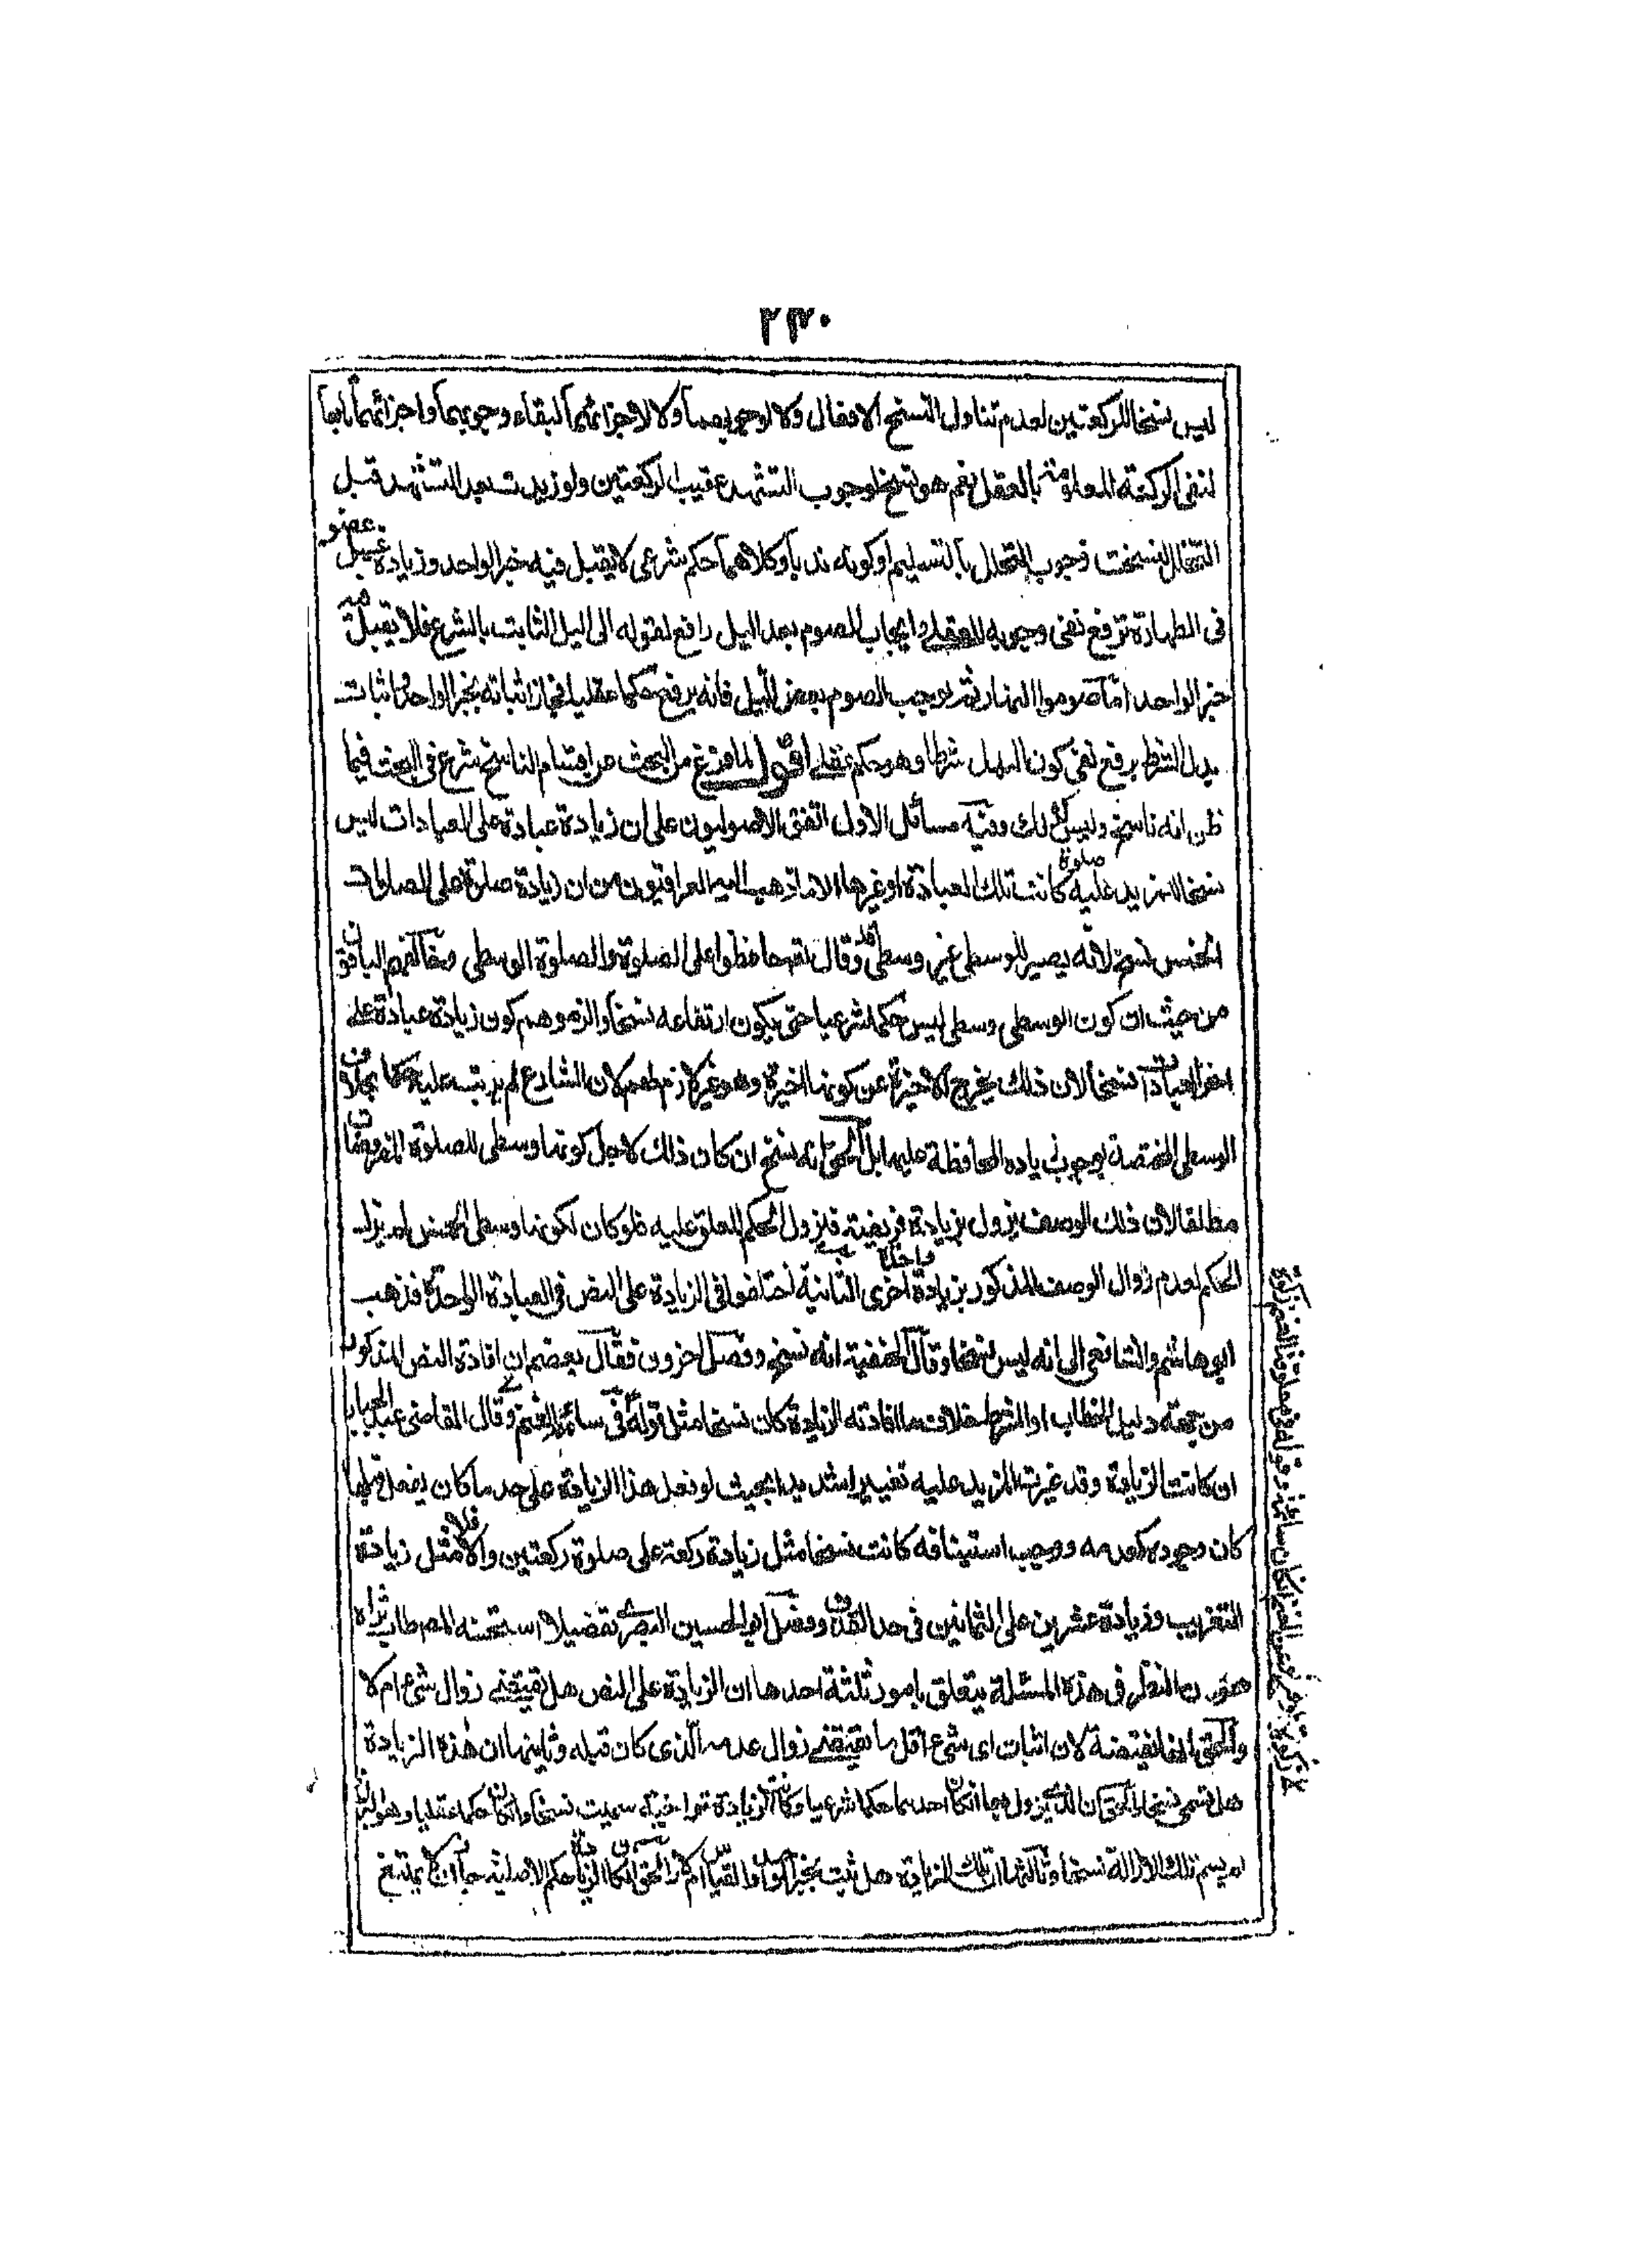 ٢٣٠
ليس نسخا للركعتين لعدم تناول النسخ الافعال ولا لوجوبهما ولا لاجزائهما لبقاء وجوبهما واجزائهما بل
لنفى الركعة المعلومة بالعقل نعم هو نسخ لوجوب التشهد عقيب الركعتين ولو زيدت بعد التشهد قبل
التحلل نسخت وجوب التحلل بالتسليم او كونه ندبا وكلاهما حكم شرعى لا يقبل فيه خبر الواحد وزيادة غسل عضو
فى الطهارة ترفع نفى وجوبه العقلى وايجاب الصوم بعد الليل رافع لقوله الى الليل الثابت بالشرع فلا يقبل فيه
خبر الواحد اما صوموا النهار ثم يوجب الصوم بعض الليل فانه يرفع حكما عقليا فجاز اثباته بخبر الواحد واثبات
بدل الشرط يرفع نفى كون البدل شرطا وهو حكم عقلى اقول لما فرغ من البحث عن اقسام الناسخ شرع فى البحث فيما
ظن انه ناسخ وليس كذلك وفيه مسائل الاول اتفق الاصوليون على ان زيادة عبادة على العبادات ليس
نسخا للمزيد عليه صلوة كانت تلك العبادة او غيرها الا ما ذهب اليه العراقيون من ان زيادة صلوة على الصلوات
الخمس نسخ لانه يصير الوسطى غير وسطى وقد قال تعالى حافظوا على الصلوة والصلوة الوسطى وخالفهم الباقون
من حيث ان كون الوسطى وسطى ليس حكما شرعيا حتى يكون ارتفاعه نسخا والزموهم كون زيادة عبادة على
اخر العبادات نسخا لان ذلك يخرج الاخيرة عن كونها اخيرة وهو غير لازم لهم لان الشارع لم يرتب عليه حكما بخلاف
الوسطى المختصة بوجوب زيادة المحافظة عليها بل الحق انه نسخ ان كان ذلك لاجل كونها وسطى للصلوة المفروضات
مطلقا لان ذلك الوصف يزول بزيادة فريضة فيزول الحكم المعلق عليه فلو كان لكونها وسطى الخمس لم يزل
الحكم لعدم زوال الوصف المذكور بزيادة واجبة اخرى الثانية اختلفوا فى الزيادة على النص فى العبادة الواحدة فذهب
ابو هاشم والشافعى الى انه ليس نسخا وقال الحنفية انه نسخ وفصل اخرون فقال بعضهم ان افادة النص المذكور
من جهة دليل الخطاب او الشرط خلاف ما افادته الزيادة كان نسخا مثل قوله فى سائمة الغنم وقال القاضى عبد الجبار
ان كانت الزيادة وقد غيرت المزيد عليه تغييرا شديدا بحيث لو فعل هذا الزيادة على حد ما كان يفعل قبلها
كان وجوده كعدمه ووجب استينافه كانت نسخا مثل زيادة ركعة على صلوة ركعتين والا فلا مثل زيادة
التغريب وزيادة عشرين على الثمانين فى حد القذف وفصل ابو الحسين البصرى تفصيلا استحسنه المصطاب ثراه
هو ان النظر فى هذه المسئلة يتعلق بامور ثلثة احدها ان الزيادة على النص هل يقتضى زوال شئ ام لا
والحق انها تقتضيه لان اثبات اى شئ اقل ما يقتضى زوال عدمه الذى كان قبله وثانيها ان هذه الزيادة
هل تسمى نسخا والحق ان الذى يزول بها ان كان حكما شرعيا وكانت الزيادة متراخية سميت نسخا وان كان حكما عقليا
لم يسم تلك الازالة نسخا وثالثها ان تلك الزيادة هل تثبت بخبر الواحد والقياس ام لا والحق ان كان